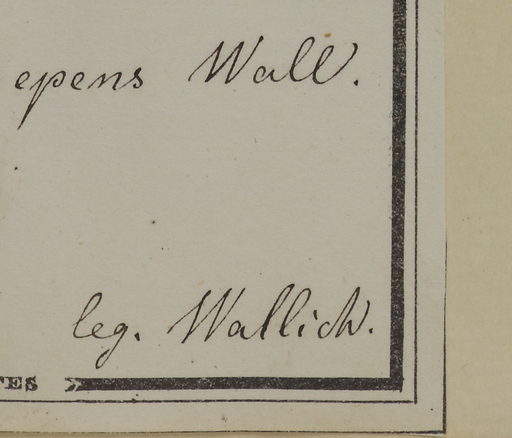 epens Wall.
leg. Wallich.
TES